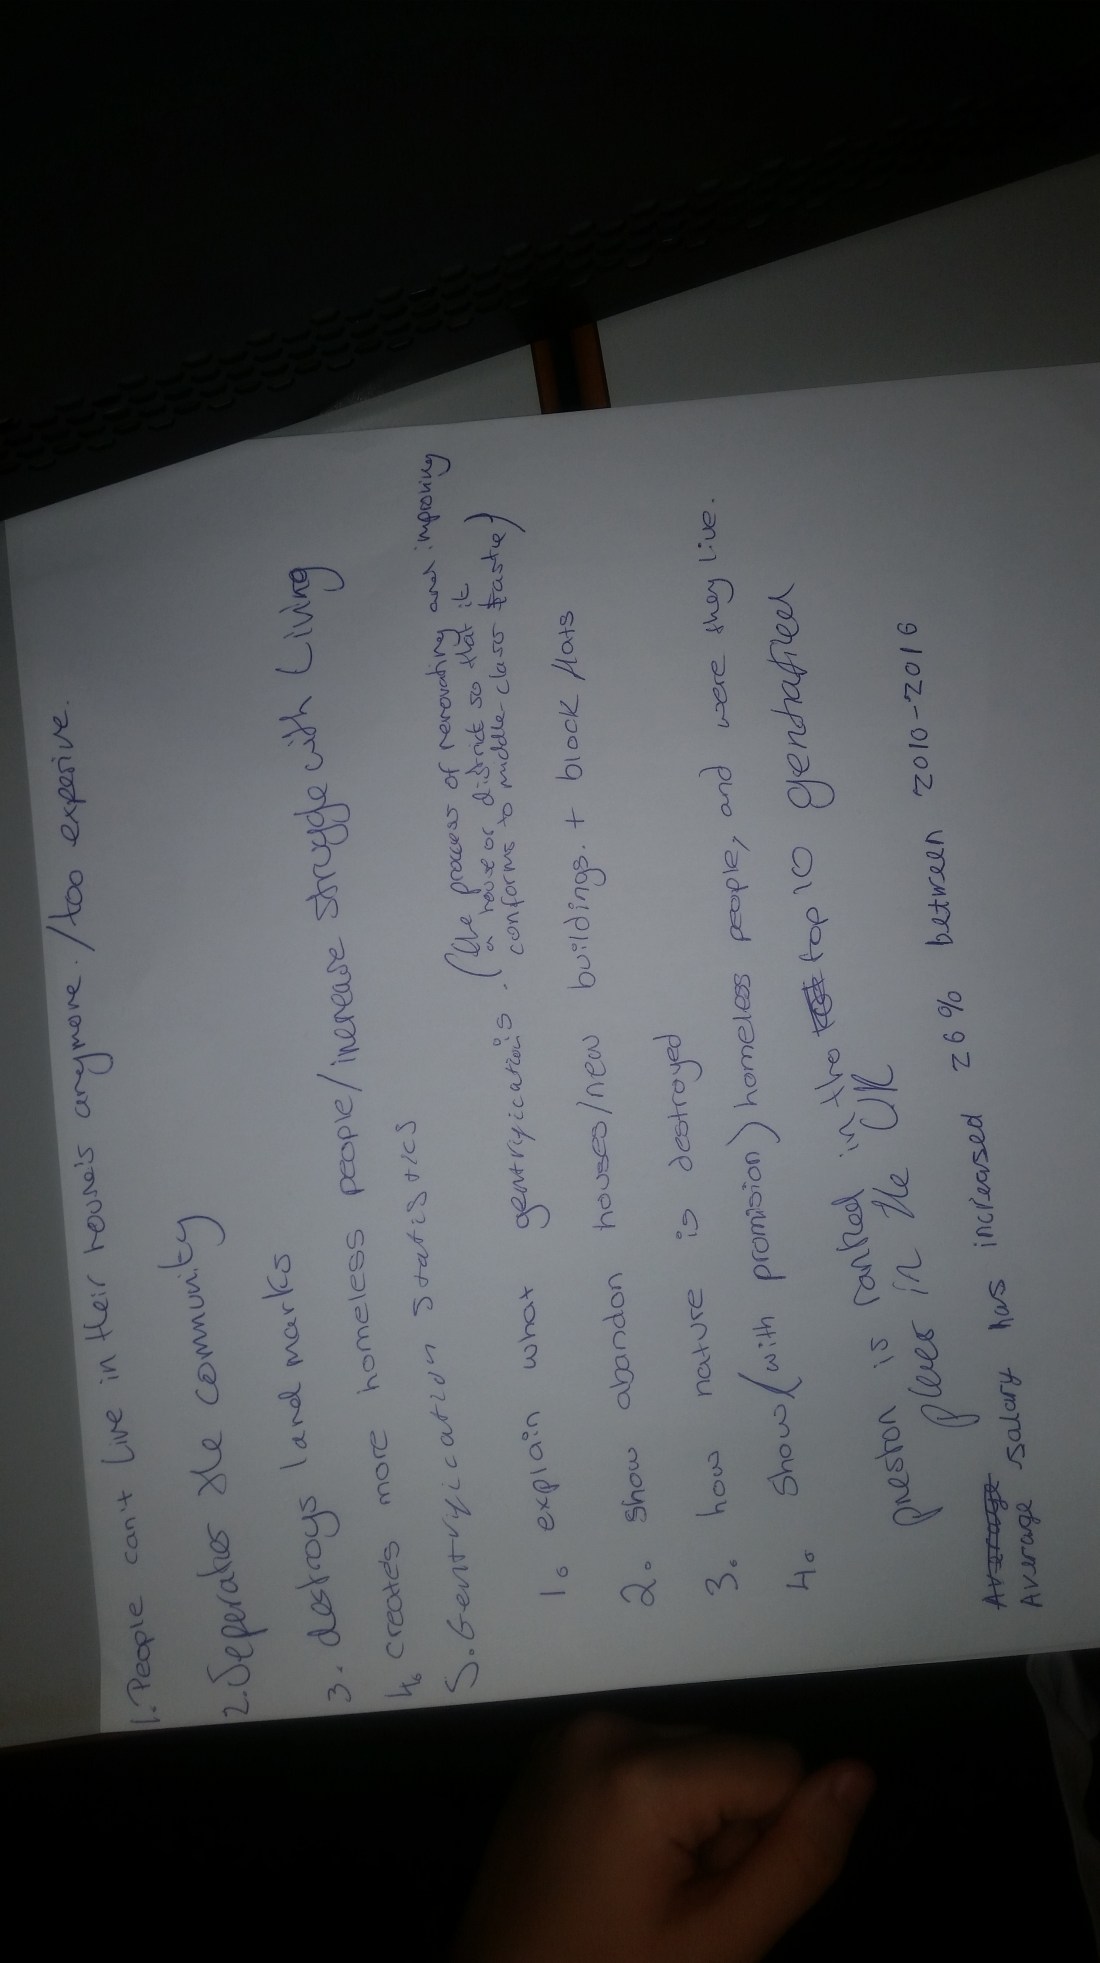 1. People can't Live in their house's anymore. / too expensive.
2. Seperates the community
3. destroys land marks
4. creates more homeless people / increase struggle with Living
5. Gentryication statistics
1. explain what gentryications. (the process of renovating and improving
a house or district so that it
conforms to middle-class tastie)
2. show abandon houses/new buildings. + block flats
3. how nature is destroyed
4. Show (with promision) homeless people, and were they live.
preston is ranked in the top 10 gentrafied
places in the UK
Average salary has increased 26% between 2010-2016